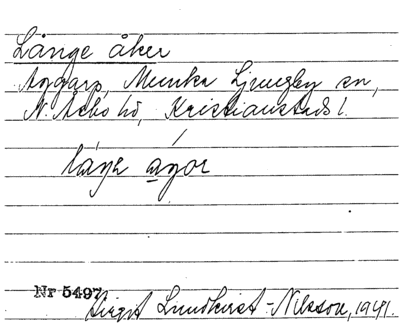 Långe åker
Aggarp, Munka Ljungby sn,
N. Åsbo hd, Kristianstads l.
Nr 5497
Birgit Lundkvist-Nilsson, 1941.